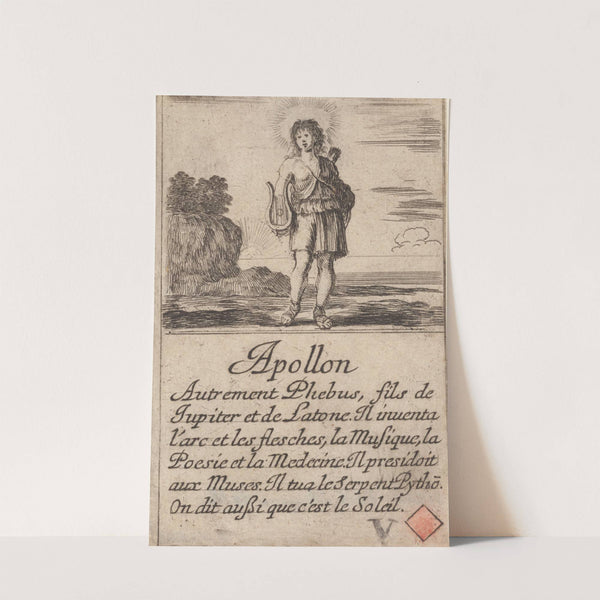 Apollon
Autrement Phebus, fils de
Jupiter et de Latone. Il inuenta
l'arc et les flesches, la Musique, la
Poesie et la Medecine. Il presidoit
aux Muses. Il tua le Serpent Pythō.
On dit außi que c'est le Soleil.
V